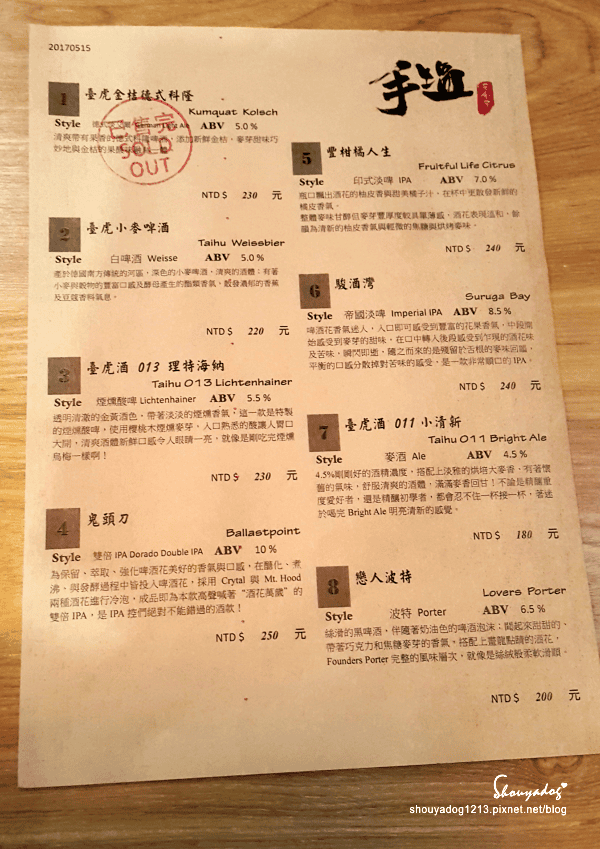 20170515
手塩
1 臺虎金桂德式科隆
Kumquat Kolsch
已售完
SOLD
OUT
Style ABV 5.0 %
清爽帶有果香的德式科隆啤酒，添加新鮮金桔、麥芽甜味巧
妙地與金桔的果酸
NTD $ 230 元
2 臺虎小麥啤酒
Taihu Weissbier
Style 白啤酒 Weisse ABV 5.0 %
產於德國南方傳統的河區，深色的小麥啤酒，清爽的酒體；有著
小麥與穀物的豐富口感及酵母產生的酯類香氣，散發濃郁的香蕉
及豆蔻香料氣息。
NTD $ 220 元
3 臺虎酒 013 理特海納
Taihu 013 Lichtenhainer
Style 煙燻酸啤 Lichtenhainer ABV 5.5 %
透明清澈的金黃酒色，帶著淡淡的煙燻香氣，這一款是特製
的煙燻酸啤，使用櫻桃木煙燻麥芽，入口熟悉的酸讓人胃口
大開，清爽酒體新鮮口感令人眼睛一亮，就像是剛吃完煙燻
烏梅一樣啊！
NTD $ 230 元
4 鬼頭刀
Ballastpoint
Style 雙倍 IPA Dorado Double IPA ABV 10 %
為保留、萃取、強化啤酒花美好的香氣與口感，在醣化、煮
沸、與發酵過程中皆投入啤酒花，採用 Crytal 與 Mt. Hood
兩種酒花進行冷泡，成品即為本款高聲喊著“酒花萬歲”的
雙倍 IPA，是 IPA 控們絕對不能錯過的酒款！
NTD $ 250 元
5 豐柑橘人生
Fruitful Life Citrus
Style 印式淡啤 IPA ABV 7.0 %
瓶口飄出酒花的柚皮香與甜美橘子汁，在杯中更散發新鮮的
橘皮香氣。
整體麥味甘醇但麥芽豐厚度較具單薄感，酒花表現溫和，餘
韻為清新的柚皮香氣與輕微的焦糖與烘烤麥味。
NTD $ 240 元
6 駿酒灣
Suruga Bay
Style 帝國淡啤 Imperial IPA ABV 8.5 %
啤酒花香氣迷人，入口即可感受到豐富的花果香氣，中段開
始感受到麥芽的甜味，在口中轉入後段感受到乍現的酒花味
及苦味，瞬間即逝，隨之而來的是殘留於舌根的麥味回甘，
平衡的口感分散掉對苦味的感受，是一款非常順口的 IPA。
NTD $ 240 元
7 臺虎酒 011 小清新
Taihu 011 Bright Ale
Style 麥酒 Ale ABV 4.5 %
4.5%剛剛好的酒精濃度，搭配上淡雅的烘培大麥香，有著懷
舊的氣味，舒服清爽的酒體，滿滿麥香回甘！不論是精釀重
度愛好者，還是精釀初學者，都會忍不住一杯接一杯，著迷
於喝完 Bright Ale 明亮清新的感覺。
NTD $ 180 元
8 戀人波特
Lovers Porter
Style 波特 Porter ABV 6.5 %
絲滑的黑啤酒，伴隨著奶油色的啤酒泡沫；聞起來甜甜的、
帶著巧克力和焦糖麥芽的香氣，搭配上畫龍點睛的酒花，
Founders Porter 完整的風味層次，就像是絲絨般柔軟滑順。
NTD $ 200 元
Shouyadog
shouyadog1213.pixnet.net/blog